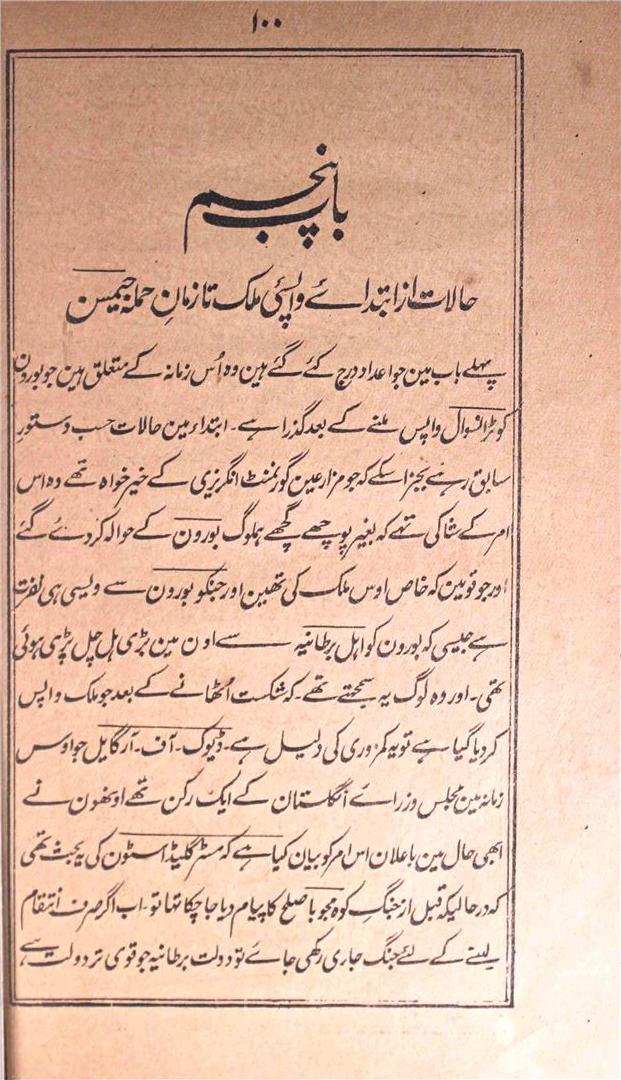 ۱۰۰
باب پنجم
حالات از ابتدائے واپسئی ملک تا زمانِ حملہ جیمسن
پہلے باب مین جو اعداد درج کئے گئے ہین وہ اُس زمانہ کے متعلق ہین جو بورون
کو ٹرانسوال واپس ملنے کے بعد گذرا ہے۔ ابتداء مین حالات حسب دستورِ
سابق رہے بجز اسکے کہ جو مزارعین گورنمنٹ انگریزی کے خیر خواہ تھے وہ اس
امر کے شاکی تہے کہ بغیر پوچھے گچھے ہملوگ بورون کے حوالہ کر دئے گئے
اور جو قومین کہ خاص اوس ملک کی تھین اور جنکو بورون سے ویسی ہی نفرت
ہے جیسی کہ بورون کو اہل برطانیہ سے اون مین بڑی ہل چل پڑی ہوئی
تھی۔ اور وہ لوگ یہ سمجہتے تھے۔ کہ شکست اُٹھانے کے بعد جو ملک واپس
کر دیا گیا ہے تو یہ کمزوری کی دلیل ہے۔ ڈیوک۔ آف۔ آرگایل جو اوس
زمانہ مین مجلس وزرائے انگلستان کے ایک رکن تھے اونھون نے
ابھی حال مین باعلان اس امر کو بیان کیا ہے کہ مسٹر گلیڈ اسٹون کی یہ بحث تھی
کہ درحالیکہ قبل از جنگِ کوہ مجوبا صلح کا پیام دیا جا چکا تہا تو۔ اب اگر صرف انتقام
لینے کے لئے جنگ جاری رکھی جائے تو دولت برطانیہ جو قوی تر دولت ہے